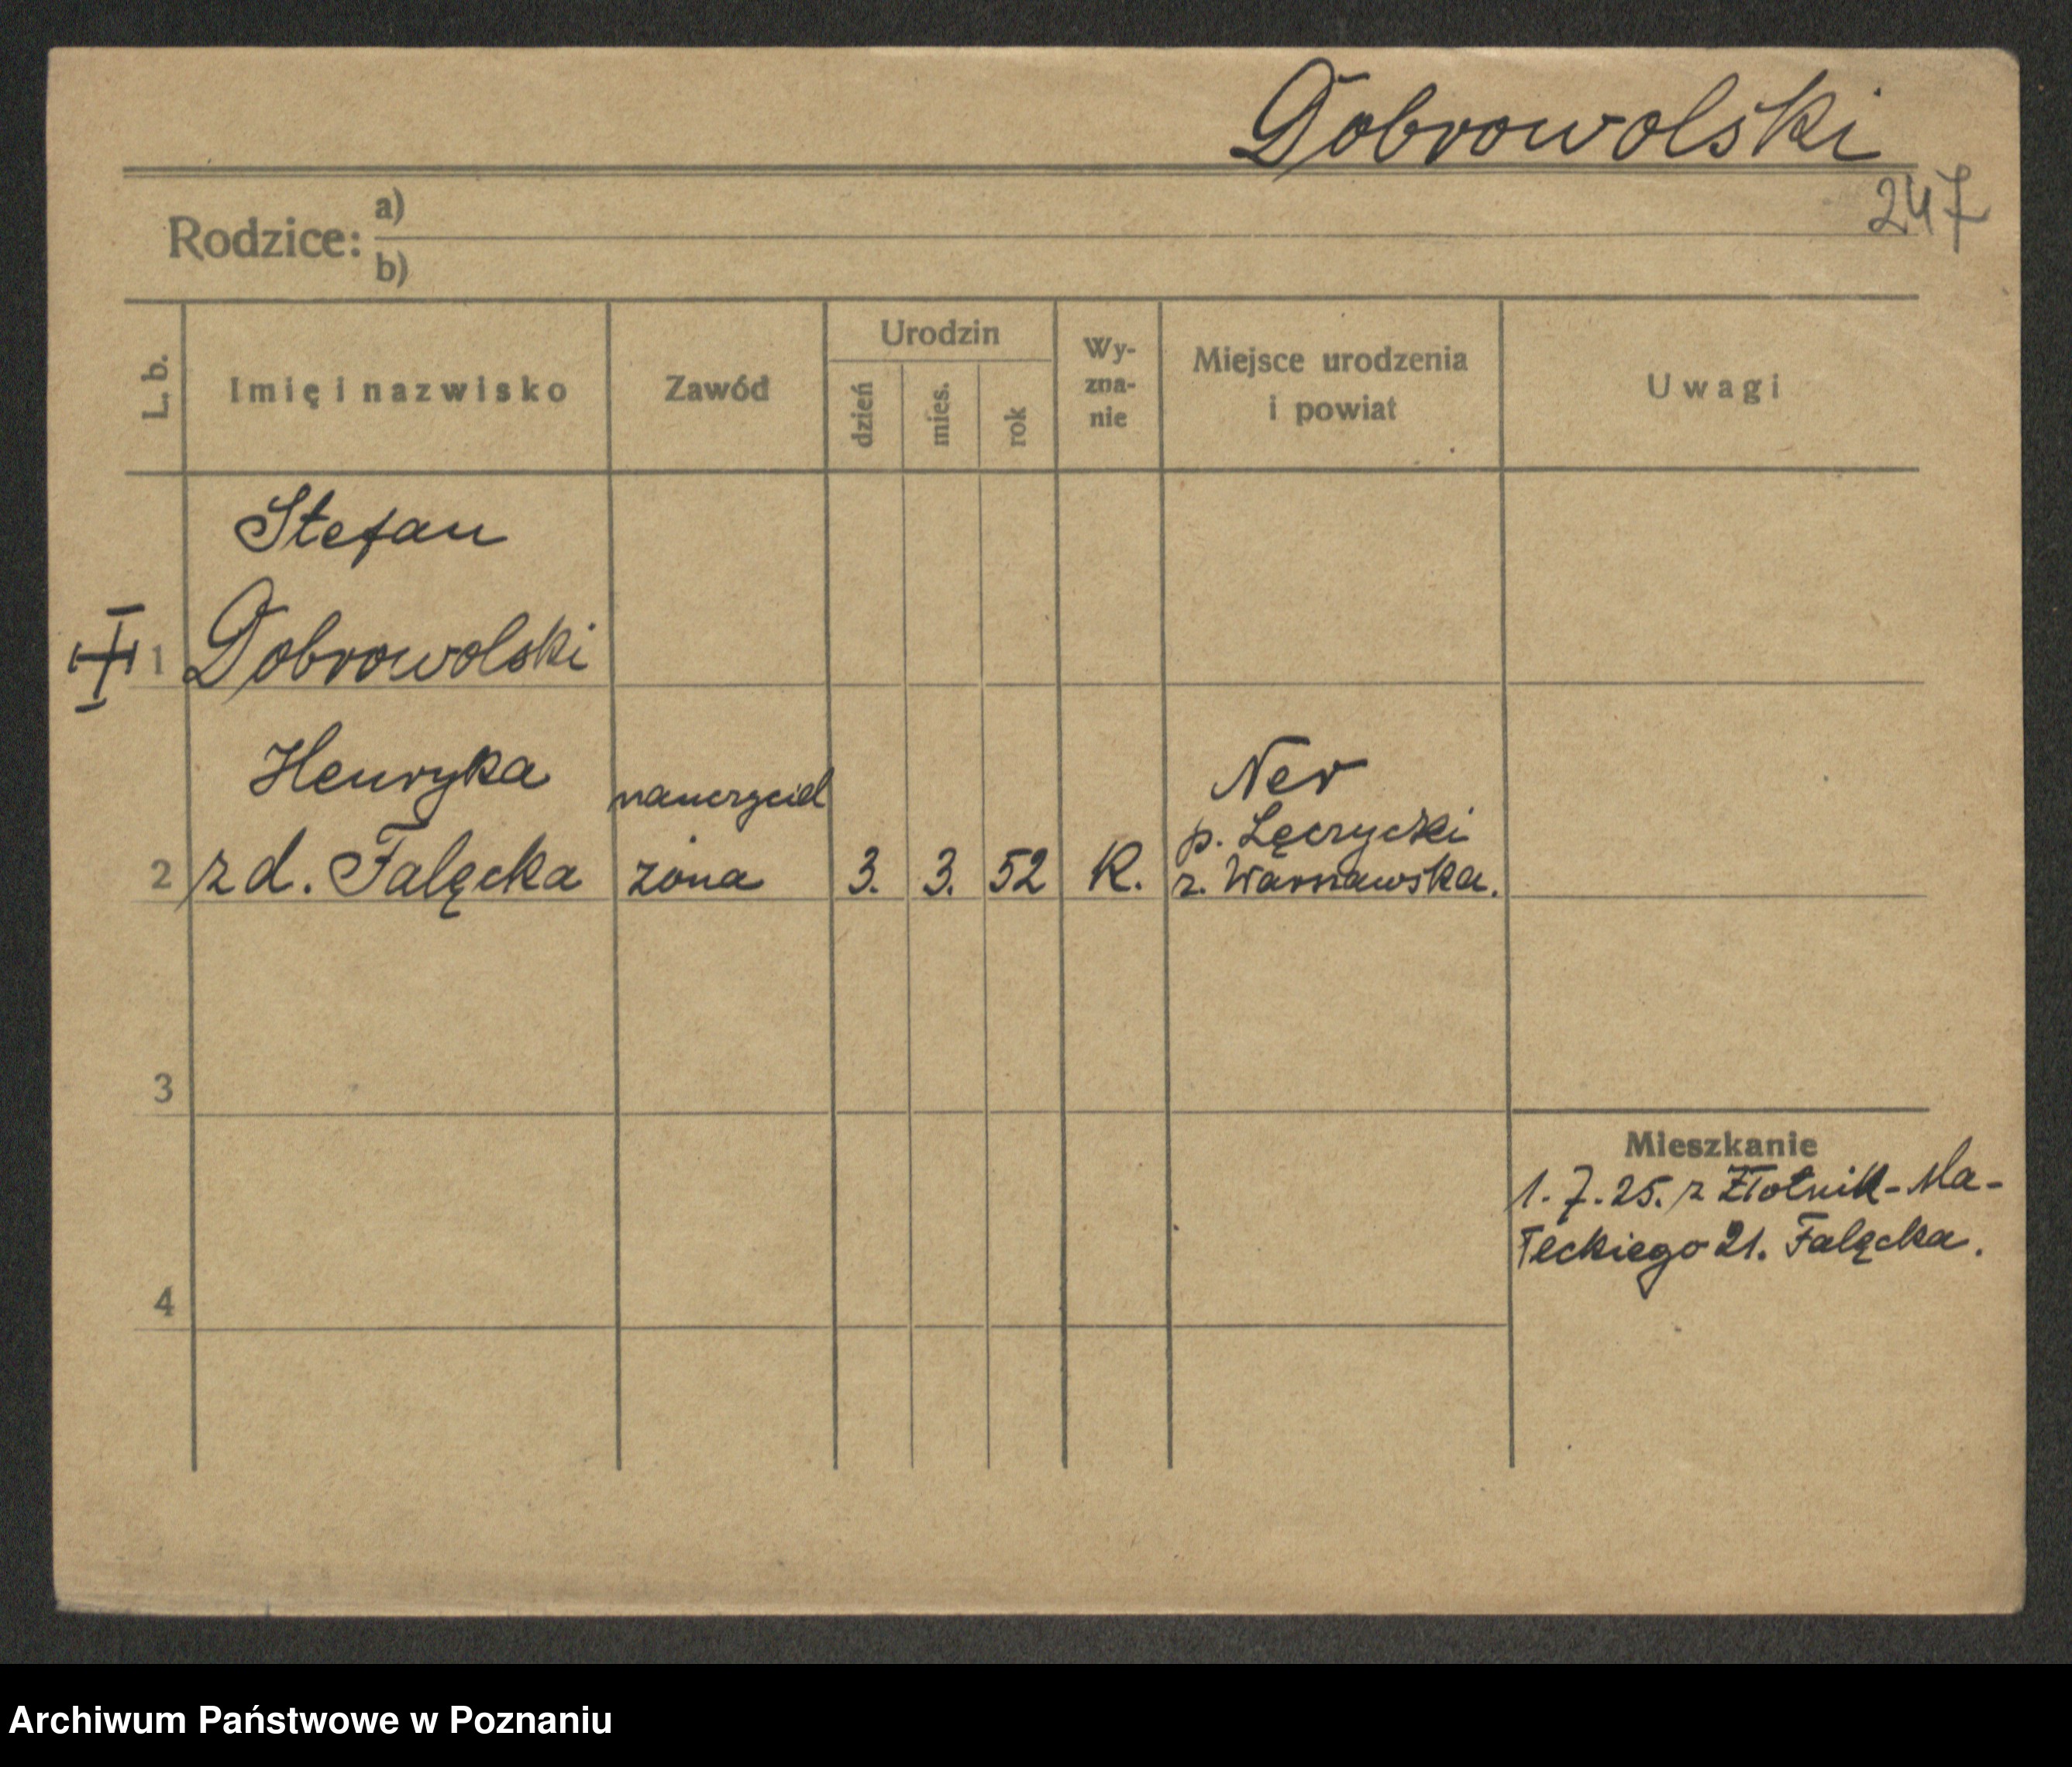 Dobrowolski
247
Rodzice: a)
b)
L. b. Imię i nazwisko Zawód Urodzin dzień mies. rok Wy-zna-nie Miejsce urodzenia i powiat Uwagi
Stefan
1 Dobrowolski
Henryka nauczyciel Ner
p. Łęczycki
2 z d. Falęcka żona 3. 3. 52 K. z. Warszawska.
3
Mieszkanie
1.7.25. z Złotnik-Ma-
łeckiego 21. Falęcka.
4
Archiwum Państwowe w Poznaniu